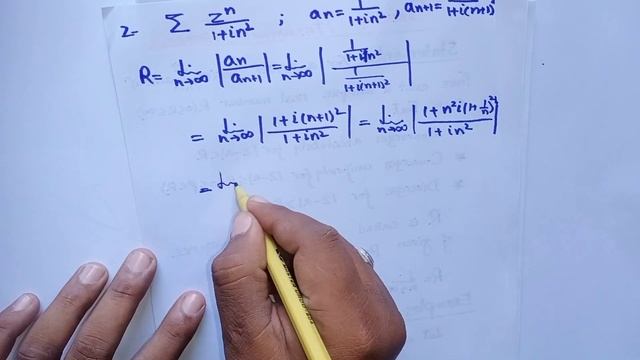 2- ∑ zⁿ/(1+in²) ; an = 1/(1+in²), an+1 = 1/(1+i(n+1)²)
R = lim n→∞ |an/an+1| = lim n→∞ |(1/(1+in²))/(1/(1+i(n+1)²))|
= lim n→∞ |(1+i(n+1)²)/(1+in²)| = lim n→∞ |(1+n²i(1+1/n)²)/(1+in²)|
= lim